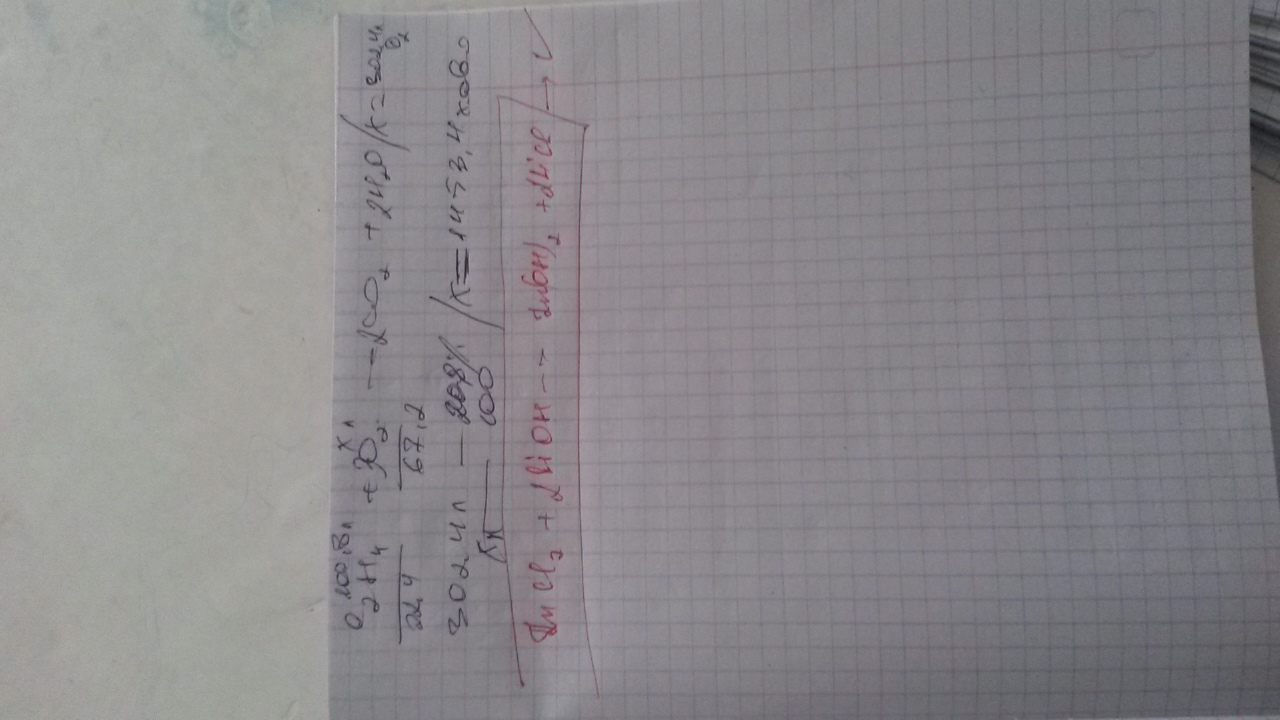 100,8л хл
C₂H₄ + 3O₂ — 2CO₂ + 2H₂O / x = 302,4л O₂
22,4 67,2
302,4л — 20,8%
хл — 100 / x = 1453,4 хав.
ZnCl₂ + 2LiOH → Zn(OH)₂ + 2LiCl / → ✓